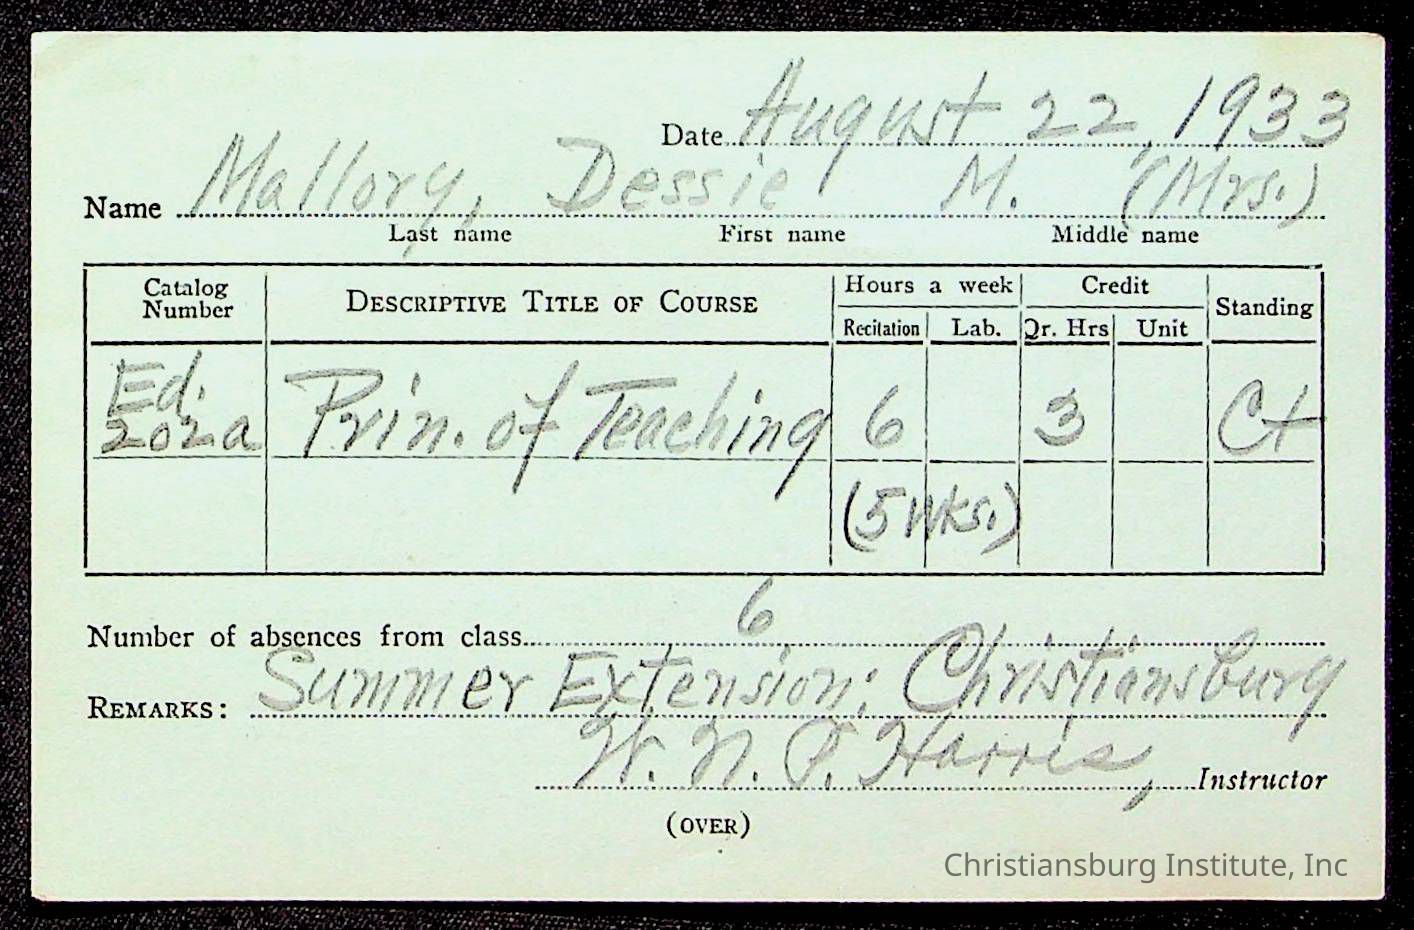 Date August 22, 1933
Name Mallory, Dessie M. (Mrs.)
Last name First name Middle name
Catalog Number DESCRIPTIVE TITLE OF COURSE Hours a week Credit Standing
Recitation Lab. Qr. Hrs Unit
Ed. 202a Prin. of Teaching 6 3 Ct
(5 wks.)
Number of absences from class 6
REMARKS: Summer Extension; Christiansburg
W. N. P. Harris, Instructor
(OVER)
Christiansburg Institute, Inc